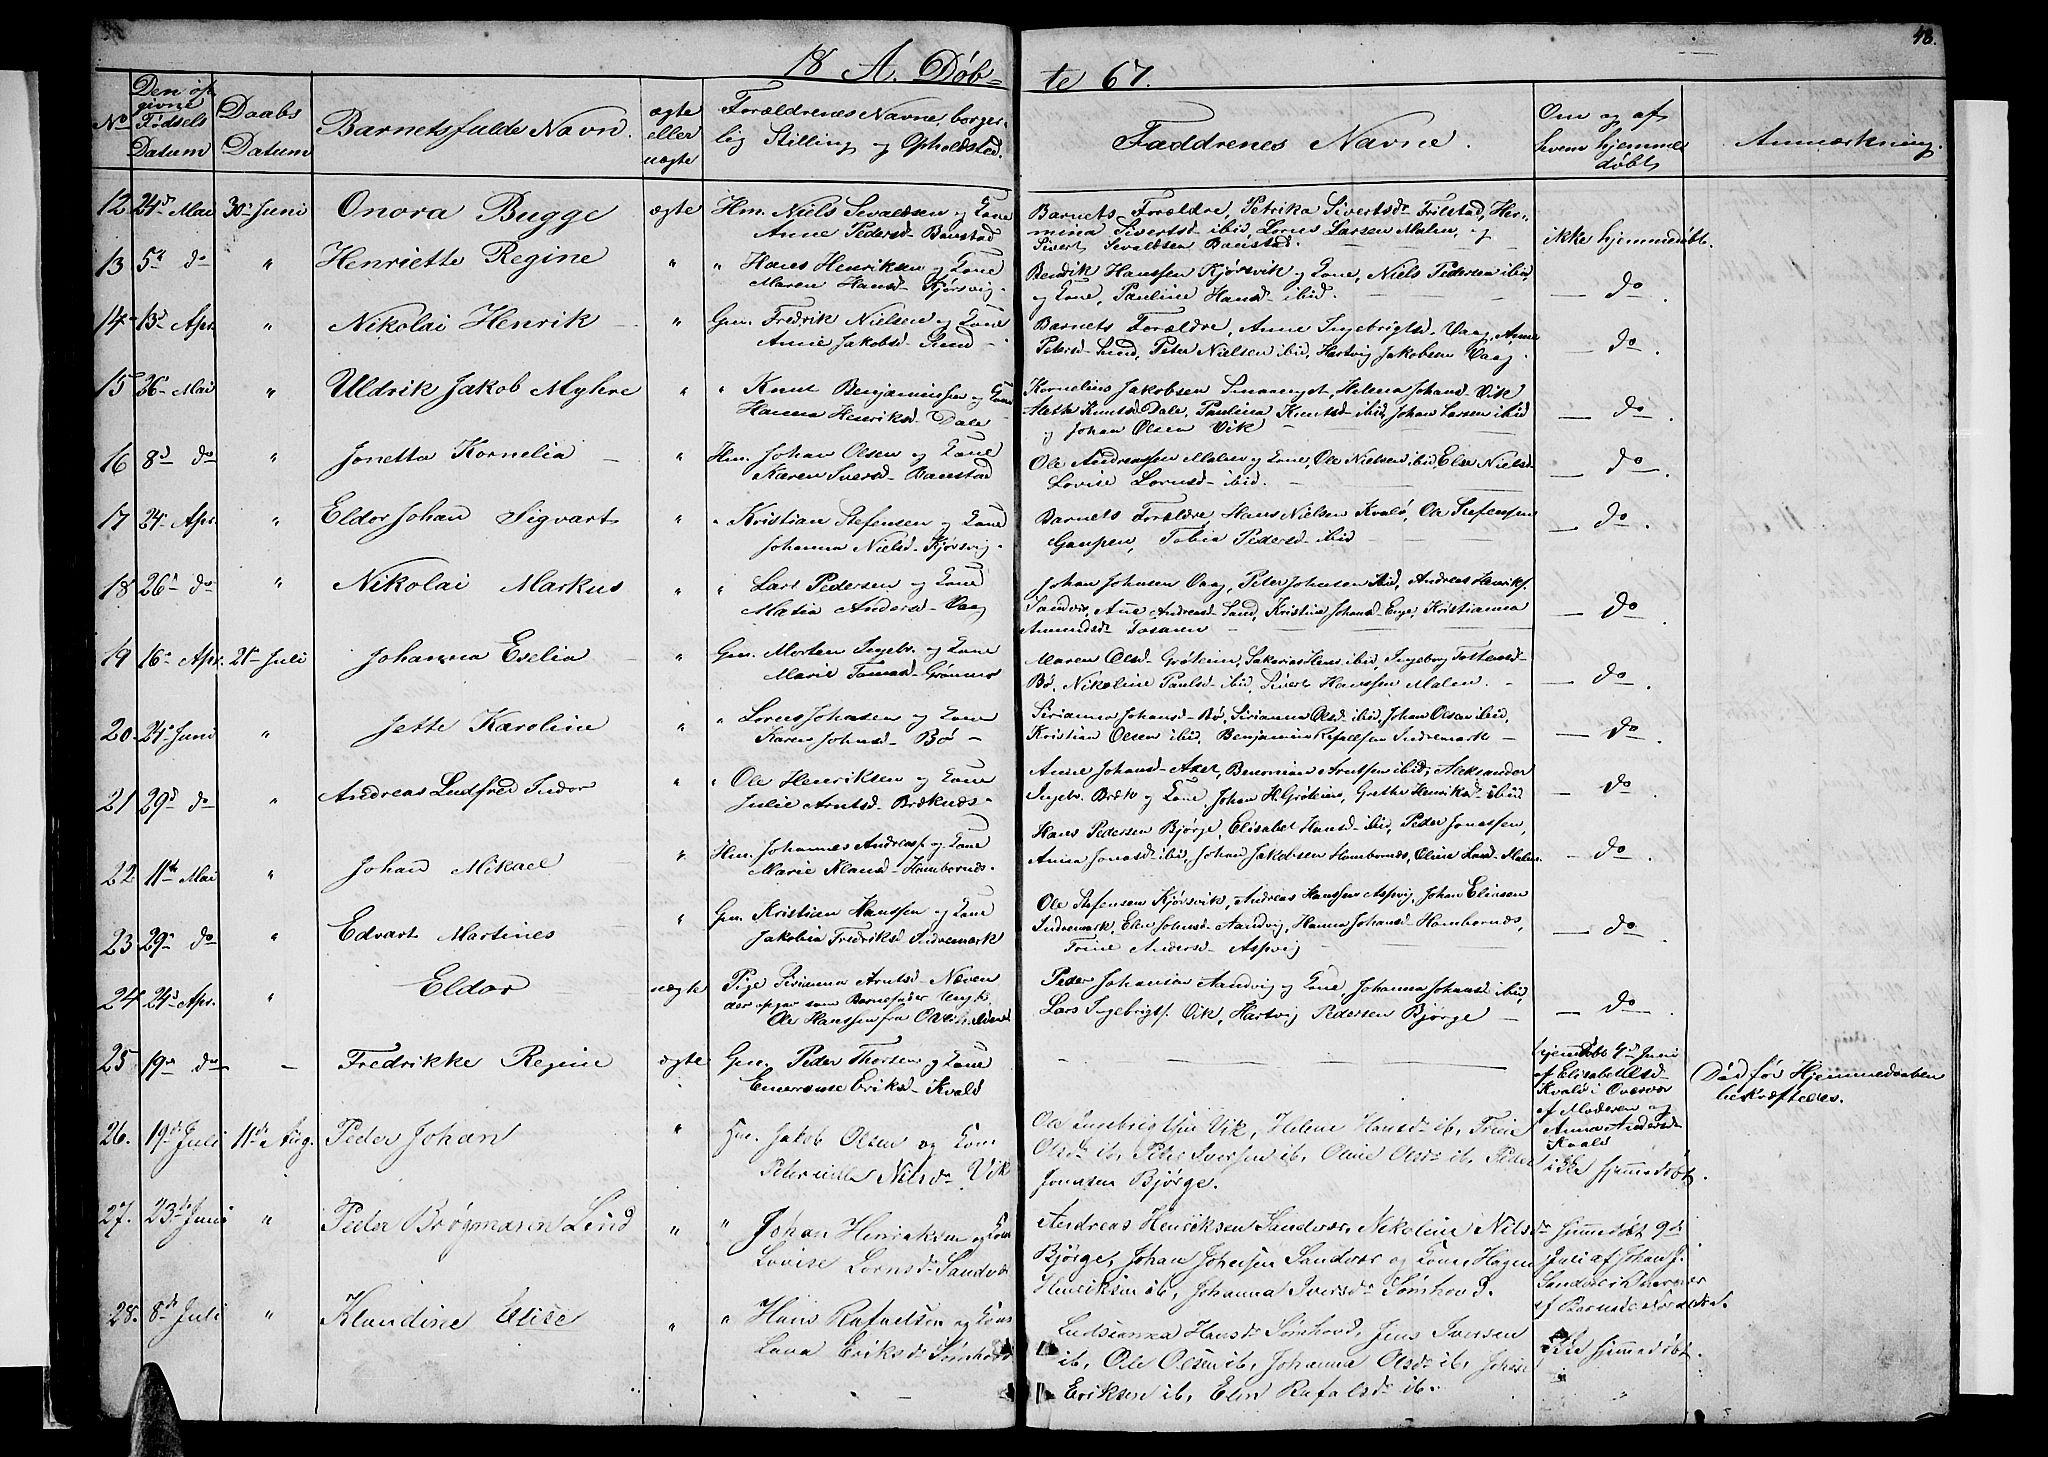 48.
18 A. Døb=
te 67.
No
Den op
givne
Fødsels
Datum
Daabs
Datum
Barnets fulde Navn.
ægte
eller
uægte
Forældrenes Navne, borger-
lig Stilling og Opholdsted.
Faddrenes Navne.
Om og af
hvem hjemme
døbt
Anmærkning.
12 24de Mai 30te Juni Onora Bugge ægte Hm. Niels Sevaldsen og Kone
Anne Pedersd. Baustad
Barnets Forældre, Petrika Sivertsdr. Frilstad, Her-
mina Sivertsd. ibid, Lorns Larsen Malen, og
Sivert Sevaldsen Baustad.
ikke hjemmedøbt.
13 5te do " Henriette Regine " " Hans Henriksen og Kone
Maren Hansd. Kjørsvig.
Bendik Hanssen Kjørsvik og Kone, Niels Pedersen ibid,
og Kone, Pauline Hansd. ibid.
— do.
14 13d Apr. " Nikolai Henrik " Gm. Fredrik Nielsen og Kone
Anne Jakobsd. Sund
Barnets Forældre, Anne Ingebrigtsd. Vaag, Anne
Petersd. Sund, Peter Nielsen ibid, Hartvig Jakobsen Vaag.
— do.
15 26 Mai " Uldrik Jakob Myhre " " Knut Benjaminsen og Kone
Hanna Henriksd. Dale
Kornelius Jakobsen, Helena Johansd. Vik
Mette Knutsd. Dale, Paulina Knutsd. ibid, Johan Larsen ibid
og Johan Olsen Vik
— do
16 8d do " Jonetta Kornelia " Hm. Johan Olsen og Kone
Karen Iversd. Baustad
Ole Andreassen Malen og Kone, Ole Nielsen ibid, Else Nielsd.
Lovise Lornsd. ibid.
— do.
17 24 Apr. " Eldor Johan Sigvart " " Kristian Stefensen og Kone
Johanna Nielsd. Kjørsvig.
Barnets Forældre, Hans Nielsen Kvalø, Ole Stefensen
Gaupen, Tobia Pedersd. ibid
— do.
18 26 do " Nikolai Markus " " Lars Pedersen og Kone
Matia Andersd. Vaag
Johan Johnsen Vaag, Peter Johnsen ibid, Andreas Henriks.
Sandvær, Anne Andreasd. Sund, Kristine Johansd., Kristianna
Amundsd.
— do
19 16 Apr. 21 Juli Johanna Evelia " Gm. Morten Ingebr. og Kone
Marie Tomasd. Grønmo
Maren Olsd. Grøtheim, ibid, Ingeborg Tostensd.
Bø, Nikoline Paulsd. ibid, Sivert Hanssen Malen.
— do.
20 24 Juni " Jette Karoline " " Lorns Johnsen og Kone
Karen Johnsd. Bø
Sirianna Johansd. Bø, Sirianna Olsd. ibid, Johan Olsen ibid,
Kristian Olsen ibid, Benjamin Rafaelsen Indremark
— do.
21 29d do " Andreas Ludfred Indor " " Ole Henriksen og Kone
Julie Arntsd. Bræknæs.
Anne Johansd. Axet, Benonian Arntsen ibid, Aleksander
Ingebr. Bræk og Kone, Johan H. Grøtheim, Grethe Henriksd. ibid
— do.
22 11te Mai " Johan Mikael " Hm. Johannes Andreass. og Kone
Marie Klausd. Hombornes.
Hans Pedersen Bjørge, Elisabet Hansd. ibid, Peder Jonassen,
Anna Jonasd. ibid, Johan Jakobsen Hombornes, Oline Malen.
— do.
23 29 do " Edvart Martines " Gm. Kristian Hanssen og Kone
Jakobia Fredriksd. Indremark
Ole Stefensen Kjørsvik, Andreas Hanssen Aspvig, Johan Eliasen
Indremark, Elen Johnsd. Aandvig, Hanna Johansd. Hombornæs,
Trine Andersd. Aspvig
— do.
24 24d Apr. " Eldor uægte Pige Sirianna Arntsd. Næven
der opgav som Barnefader Ungk.
Ole Hanssen fra Overhalden
Peder Johansen Aandvig og Kone, Johanna Johansd. ibid,
Lars Ingebrigts. Vik, Hartvig Pedersen Bjørge
— do.
25 19 do — Fredrikke Regine ægte Gm. Peder Thorsen og Kone
Emerense Eriksd. Kvalø
hjemdøbt 9de Juni
af Elisabet Olsd.
Kvalø i Overvær
af Moderen og
Anna Andersd.
Kvalø
Død før Hjemmedaaben
bekræftedes.
26. 19de Juli 11te Aug. Peder Johan " Hm. Jakob Olsen og Kone
Peternille Nilsdr. Vik
Ole Vik, Helene Hansdr. ib, Trine
Olsdr. ib, Peter Iversen ib, Oline Olsdr. ib, Peder
Jonassen Bjørge.
ikke hjemmedøbt.
27. 23de Juni " Peder Brøgmasen Lind " " Johan Henriksen og Kone
Lovise Lornsdr. Sandvær
Andreas Henriksen Sandvær, Nekoline Nilsdr
Bjørge, Johan Johnsen Sandvær og Kone, Hagen
Henriksen ib, Johanna Iversdr Sømhovd.
hjemmedøbt 9de
Juli af Johan J.
Sandvær i Overvær
af Barnets forældre.
28. 8de Juli " Klaudine Elise " " Hans Rafaelsen og Kone
Lava Eriksdr Sømhovd
Ludsianna Hansdr Sømhovd, Jens Iversen
ib, Ole Olsen ib, Johanna Olsdr ib, Johan
Eriksen ib, Elen Rafalsdr ib.
Ikke hjemmedøbt.